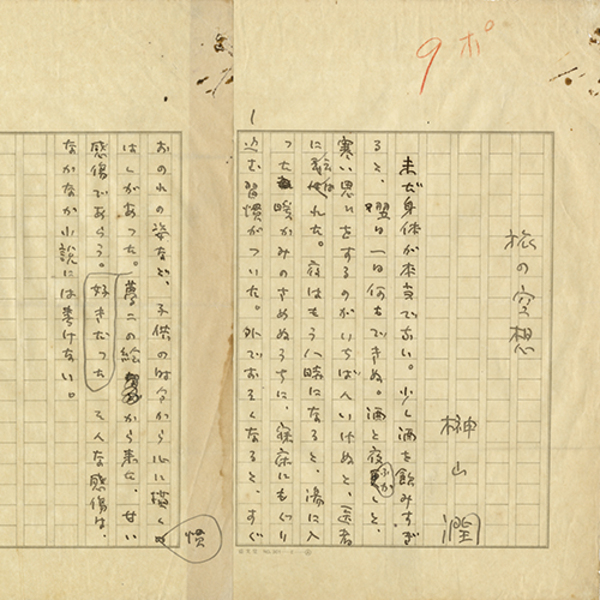 9ポ
1
旅の空想
榊山潤
未だ身体が本当でない。少し酒を飲みすぎ
ると、翌日一日何もできぬ。酒と夜ふかしと、
寒い思ひをするのがいちばんいけぬと、医者
に れた。夜はもう八時になると、湯に入
つた暖かみのさめぬうちに、寝床にもぐり
込む習慣がついた。外でおそくなると、すぐ
おのれの姿など、子供の時分から心に描く
慣
はしがあつた。夢二の絵から来た、甘い
感傷であらう。好きだつたそんな感傷は、
なかなか小説には書けない。